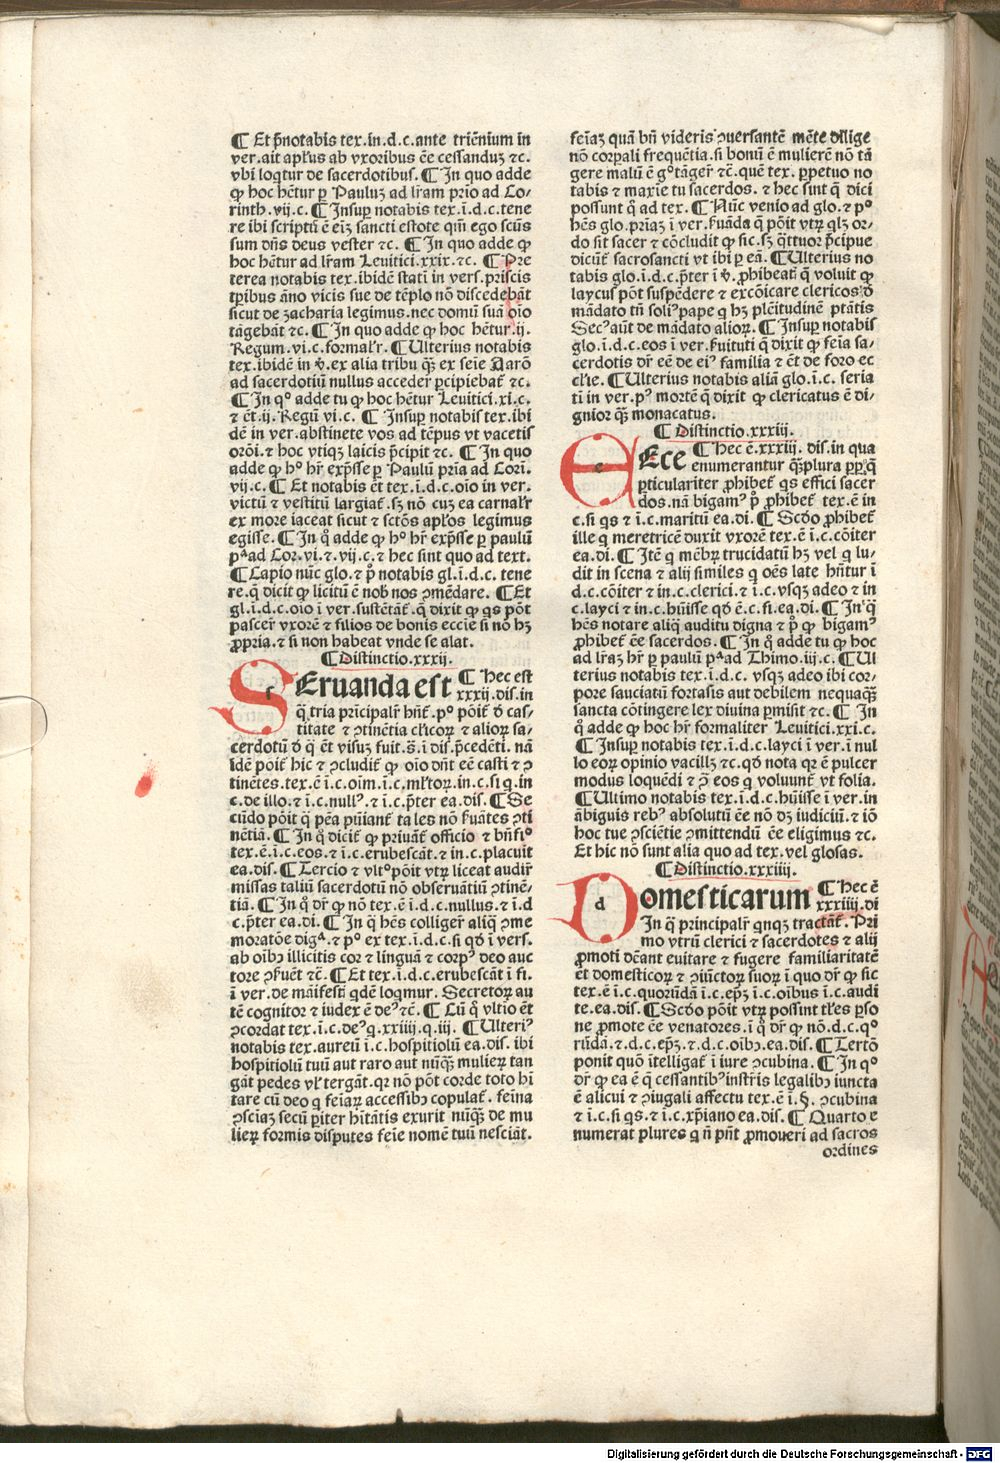 ¶ Et p̄notabis tex.in.d.c.ante triēnium in
ver.ait apl̄us ab vxoribus ēe cessanduꝫ ⁊c.
vbi loq̄tur de sacerdotibus. ¶ In quo adde
ꝙ hoc hētur ꝑ Pauluꝫ ad lr̄am prīo ad Co-
rinth.vij.c. ¶ Insuꝑ notabis tex.ī.d.c.tene
re ibi scriptū ē eīꝫ sancti estote qm̄ ego scūs
sum dn̄s deus vester ⁊c. ¶ In quo adde ꝙ
hoc hētur ad lr̄am Leuitici.xxix.⁊c. ¶ Pre
terea notabis tex.ibidē statī in vers.priscis
tꝑibus āno vicis sue de tēplo nō discedebāt
sicut de zacharia legimus.nec domū suā oīo
tāgebāt ⁊c. ¶ In quo adde ꝙ hoc hētur.ij.
Regum.vi.c.formal'r. ¶ Ulterius notabis
tex.ibidē in v̄.ex alia tribu q̄ꝫ ex seīe Aarō
ad sacerdotiū nullus acceder p̄cipiebat̄ ⁊c.
¶ In qº adde tu ꝙ hoc hētur Leuitici.xi.c.
⁊ ēt.ij.Regū vi.c. ¶ Insuꝑ notabis tex.ibi
dē in ver.abstinete vos ad tēpus vt vacetis
orōi.⁊ hoc vtiqꝫ laicis p̄cipit ⁊c. ¶ In quo
adde ꝙ hº hr̄ exp̄sse ꝑ Paulū prīa ad Corī.
vij.c. ¶ Et notabis ēt tex.ī.d.c.oīo in ver.
victū ⁊ vestitū largiat̄.sꝫ nō cuꝫ ea carnal'r
ex more iaceat sicut ⁊ sctōs apl̄os legimus
egisse. ¶ In q̄ adde ꝙ hº hr̄ exp̄sse ꝑ paulū
pᵃad Cor.vi.⁊.vij.c.⁊ hec sint quo ad text.
¶ Capio nūc glo.⁊ p̄ notabis gl.ī.d.c. tene
re.q̄ dicit ꝙ licitū ē nob̄ nos ꝯmēdare. ¶ Et
gl.ī.d.c.oīo ī ver.sustētāt̄.q̄ dixit ꝙ qs pōt
pascer vxorē ⁊ filios de bonis eccīe si nō hꝫ
ꝓpria.⁊ si non habeat vnde se alat.
¶ Distinctio.xxxij.
SEruanda est ¶ Hec est
xxxij.dis.in
q̄ tria prīcipal'r hn̄t̄.pº pōit̄ d̄ cas-
titate ⁊ ꝯtinētia cl'icoꝝ ⁊ alioꝝ sa-
cerdotū d̄ q̄ ēt visuꝫ fuit.s̄.ī dis.p̄cedēti. nā
īdē pōit̄ hic ⁊ ꝯcludit̄ ꝙ oīo dn̄t ēē casti ⁊ ꝯ
tinētes.tex.ē ī.c.oīm.ī.c.ml'toꝝ.in.c.si q.in
c.de illo.⁊ ī.c.null⁹.⁊ ī.c.p̄ter ea.dis. ¶ Se
cūdo pōit q̄ pēa pūiant̄ ta les nō ẜuātes ꝯti
nētiā. ¶ In q̄ dicit̄ ꝙ priuāt̄ officio ⁊ bn̄fiº
tex.ē.ī.c.eos.⁊ ī.c.erubescāt.⁊ in.c.placuit̄
ea.dis. ¶ Tercio ⁊ vltºpōit vtꝝ liceat audir̄
missas taliū sacerdotū nō obseruātiū ꝯtinē-
tiā. ¶ In q̄ dr̄ ꝙ nō tex.ē ī.d.c.nullus.⁊ ī.d
c.p̄ter ea.di. ¶ In q̄ hēs colliger̄ aliq̄ ꝯme
moratōe digᵃ.⁊ pº ex tex.ī.d.c.si qd̄ ī vers.
ab oībꝫ illicitis cor ⁊ linguā ⁊ corp⁹ deo auc
tore ꝯẜuēt ⁊c̄. ¶ Et tex.ī.d.c.erubescāt ī fi.
ī ver.de māifestī qdē loqmur. Secretoꝝ au
tē cognitor ⁊ iudex ē de⁹⁊c̄. ¶ Cū q̄ vltio ēt
ꝯcordat tex.ī.c.de⁹q.xxiiij.q.iij. ¶ Ulteri⁹
notabis tex.aureū ī.c.hospitiolū ea.dis. ibi
hospitiolū tuū aut raro aut nūq̄ꝫ mulieꝝ tan
gāt pedes vl' tergāt.qr nō pōt corde toto hī
tare cū deo q feīaꝝ accessibꝫ copulat̄. feīna
ꝯsciaꝫ secū piter hītātis exurit nūq̄ꝫ de mu
lieꝝ formis disputes feīe nomē tuū nesciāt.
feīaꝫ quā bn̄ videris ꝯuersantē mēte dilige
nō corꝑali frequētia.si bonū ē mulierē nō tā
gere malū ē gºtāger̄ ⁊c̄.quē tex. ꝑpetuo no
tabis ⁊ maxīe tu sacerdos.⁊ hec sunt q̄ dici
possunt q̄ ad tex. ¶ Nūc venio ad glo.⁊ pº
hēs glo.prīaꝫ ī ver.ẜuāda q̄ pōit vtꝝ qlꝫ or-
do sit sacer ⁊ cōcludit ꝙ sic.sꝫ q̄ttuor p̄cipue
dicūt̄ sacrosancti vt ibi ꝑ eā. ¶ Ulterius no
tabis glo.ī.d.c.p̄ter ī v̄.ꝓhibeat̄ q̄ voluit ꝙ
laycus pōt suspēdere ⁊ excōicare clericos d̄
mādato tn̄ soli⁹pape q hꝫ plēitudinē ptātis
Sec⁹aūt de mādato alioꝝ. ¶ Insuꝑ notabis
glo.ī.d.c.eos ī ver.ẜuituti q̄ dixit ꝙ feīa sa-
cerdotis dr̄ eē de ei⁹ familia ⁊ ēt de foro ec
cl'ie. ¶ Ulterius notabis aliā glo.ī.c. seria
tī in ver.p⁹ mortē q̄ dixit ꝙ clericatus ē di-
gnior q̄ꝫ monacatus.
¶ Distinctio.xxxiij.
ECce ¶ Hec ē.xxxiij. dis.in qua
enumerantur q̄ꝫplura ꝑp̄q̄
ꝑticulariter ꝓhibet̄ qs effici sacer
dos.nā bigam⁹ p̄ ꝓhibet̄ tex.ē in
c.si qs ⁊ ī.c.maritū ea.di. ¶ Scdo ꝓhibet̄
ille q meretricē duxit vxorē tex.ē ī.c.cōiter
ea.di. ¶ Itē q mēbꝝ trucidatū hꝫ vel q lu-
dit in scena ⁊ alij similes q oēs late hn̄tur ī
d.c.cōiter ⁊ in.c.clerici.⁊ ī.c.vsqꝫ adeo ⁊ in
c.layci ⁊ in.c.hūisse qd̄ ē.c.fi.ea.di. ¶ In q̄
hēs notare aliq̄ auditu digna ⁊ p̄ ꝙ bigam⁹
ꝓhibet̄ ēe sacerdos. ¶ In q̄ adde tu ꝙ hoc
ad lr̄aꝫ hr̄ ꝑ paulū pᵃad Thimo.iij.c. ¶ Ul
terius notabis tex.ī.d.c. vsqꝫ adeo ibi cor-
pore sauciatū fortasis aut debilem nequaq̄ꝫ
sancta cōtingere lex divina ꝑmisit ⁊c. ¶ In
q̄ adde ꝙ hoc hr̄ formaliter Leuitici.xxi.c.
¶ Insuꝑ notabis tex.ī.d.c.layci ī ver.ī nul
lo eoꝝ opinio vacillꝫ ⁊c.qd̄ nota qr ē pulcer
modus loquēdi ⁊ ꝯ̄ eos q voluunt̄ vt folia.
¶ Ultimo notabis tex.ī.d.c.hūisse ī ver.in
ābiguis reb⁹ absolutū ēe nō dꝫ iudiciū.⁊ iō
hoc tue ꝯsciētie ꝯmittendū ēe eligimus ⁊c.
Et hic nō sunt alia quo ad tex.vel glosas.
¶ Distinctio.xxxiiij.
DOmesticarum ¶ Hec ē
xxxiiij.di
In q̄ principal'r qnqꝫ tractāt̄. Pri
mo vtrū clerici ⁊ sacerdotes ⁊ alij
ꝓmoti dēant euitare ⁊ fugere familiaritatē
ēt domesticoꝝ ⁊ ꝯiūctoꝝ suoꝝ ī quo dr̄ ꝙ sic
tex.ē ī.c.quorūdā ī.c.ep̄ꝫ ī.c.oībus ī.c.audi
te.ea.dis. ¶ Scdo pōit vtꝝ possint tl'es ꝑso
ne ꝓmote ēe venatores.ī q̄ dr̄ ꝙ nō.d.c.qº
rūdā.⁊.d.c.ep̄ꝫ.⁊.d.c.oībꝫ.ea.dis. ¶ Tertō
ponit quō ītelligat̄ ī iure ꝯcubina. ¶ In qº
dr̄ ꝙ ea ē q̄ cessantib⁹instr̄is legalibꝫ iuncta
ē alicui ⁊ ꝯiugali affectu tex.ē ī.§. ꝯcubina
⁊ ī.c.si qs.⁊ ī.c.xp̄iano ea.dis. ¶ Quarto e
numerat plures q n̄ pn̄t ꝓmoueri ad sacros
ordines
Digitalisierung gefördert durch die Deutsche Forschungsgemeinschaft - DFG